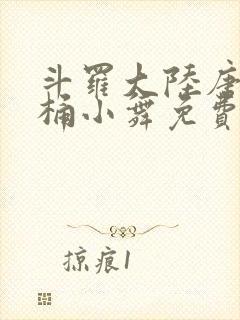 斗羅大陸唐
桶小舞免費
掠痕1